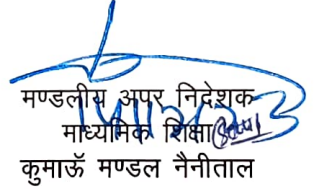 मण्डलीय अपर निदेशक
माध्यमिक शिक्षा
कुमाऊॅ मण्डल नैनीताल